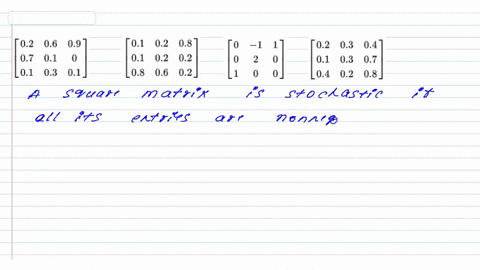 [0.2 0.6 0.9] [0.1 0.2 0.8] [0 -1 1] [0.2 0.3 0.4]
[0.7 0.1 0] [0.1 0.2 0.2] [0 2 0] [0.1 0.3 0.7]
[0.1 0.3 0.1] [0.8 0.6 0.2] [1 0 0] [0.4 0.2 0.8]
A square matrix is stochastic if
all its entries are nonneg